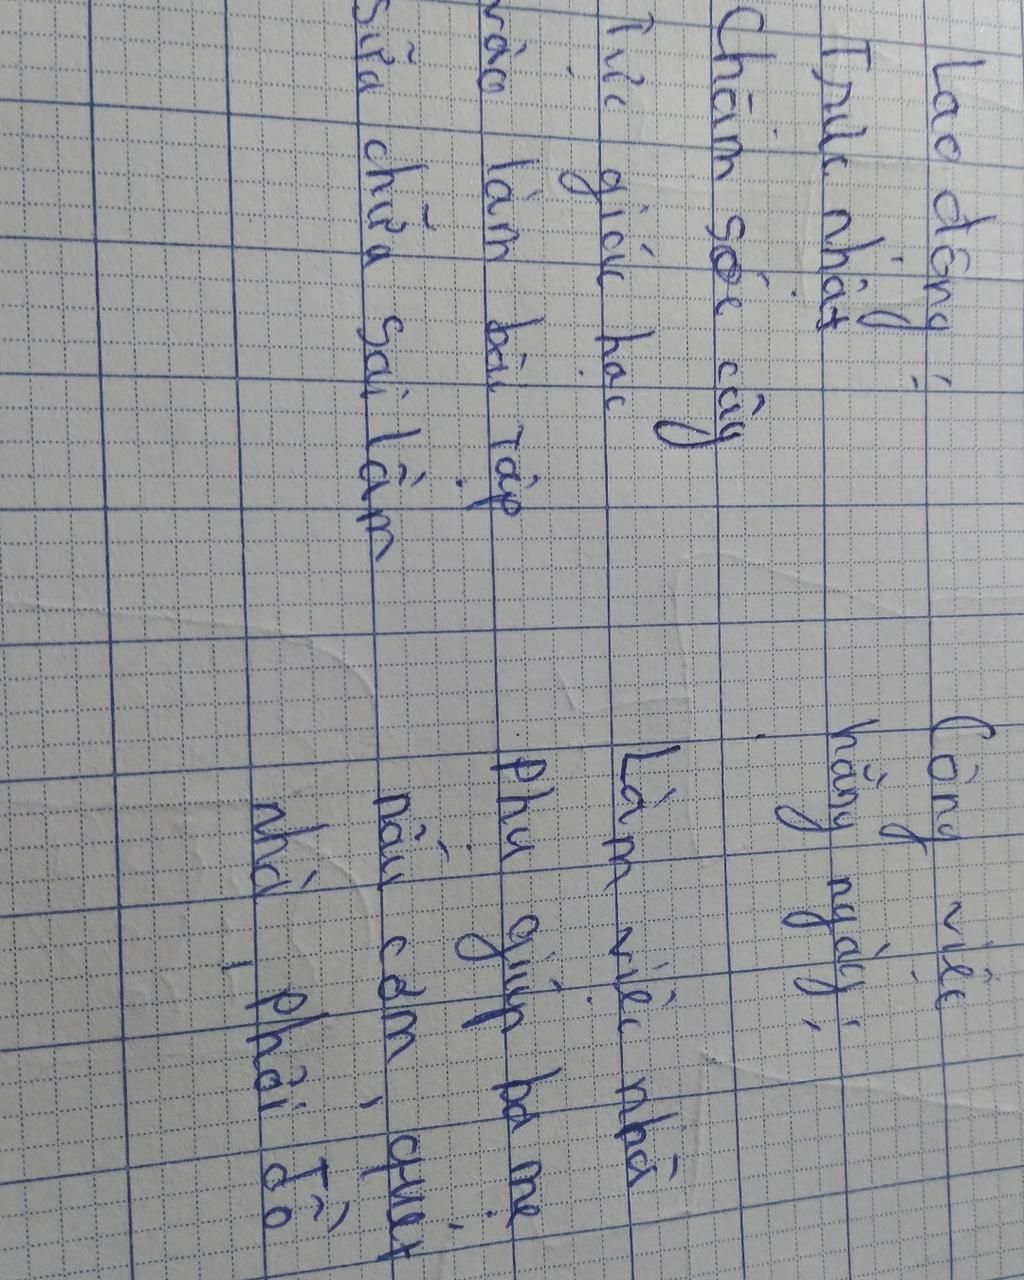 Lao động:
Trực nhật
Chăm sóc cây
Tức giấc học
vào làm bài tập
Sữa chữa sai lầm
Công việc
hằng ngày:
Làm việc nhà
Phụ giúp ba mẹ
nấu cơm, quét
nhà, phơi đồ